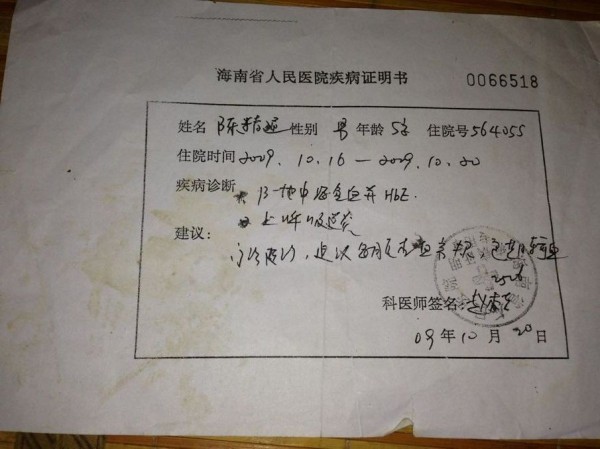 海南省人民医院疾病证明书 0066518
姓名 陈 性别 男 年龄 5岁 住院号 564055
住院时间 2009.10.16 — 2009.10.20
疾病诊断 β-地中海贫血并HbE
上呼吸道炎
建议:
门诊随诊,建议每月复查血常规
科医师签名:
09年10月20日